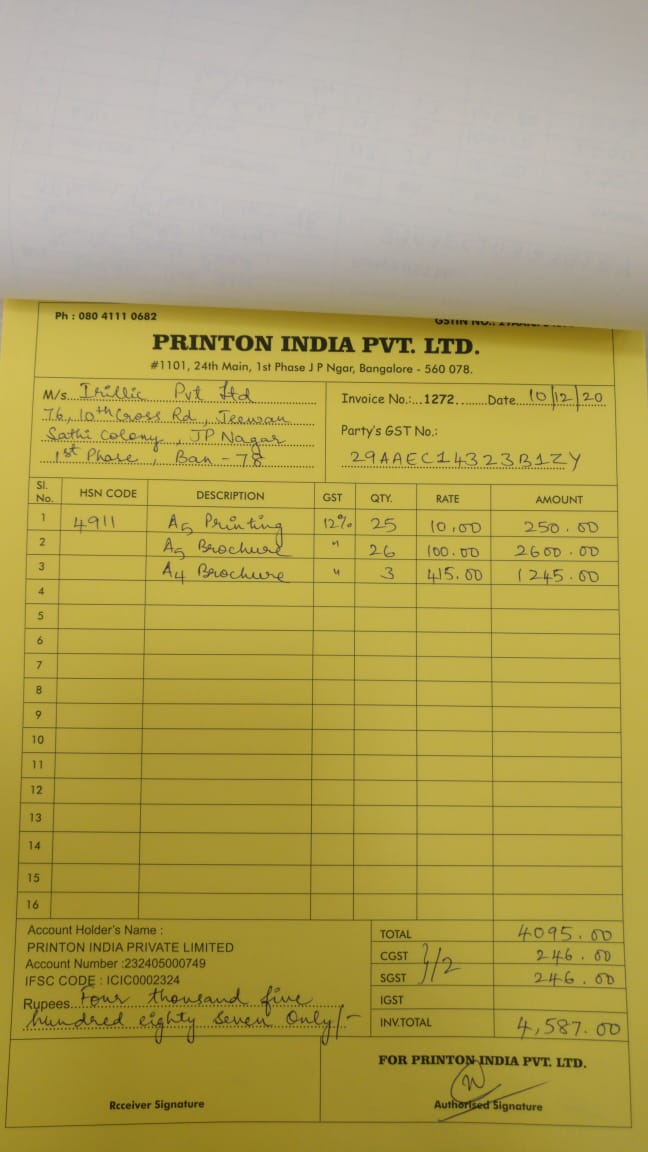 Ph : 080 4111 0682
GSTIN NO.:
PRINTON INDIA PVT. LTD.
#1101, 24th Main, 1st Phase J P Ngar, Bangalore - 560 078.
M/s. Irillic Pvt Ltd
76, 10th Cross Rd, Jeewan
Sathi Colony, JP Nagar
1st Phase, Ban - 78
Invoice No.:...1272........Date 10/12/20
Party's GST No.:
29AAEC14323B1ZY
Sl. No. HSN CODE DESCRIPTION GST QTY. RATE AMOUNT
1 4911 A5 Printing 12% 25 10.00 250.00
2 A5 Brochure " 26 100.00 2600.00
3 A4 Brochure " 3 415.00 1245.00
4
5
6
7
8
9
10
11
12
13
14
15
16
Account Holder's Name :
PRINTON INDIA PRIVATE LIMITED
Account Number :232405000749
IFSC CODE : ICIC0002324
Rupees Four thousand five
hundred eighty seven Only/-
TOTAL 4095.00
CGST 246.00
SGST 246.00
IGST
INV.TOTAL 4,587.00
FOR PRINTON INDIA PVT. LTD.
Rcceiver Signature
Authorised Signature